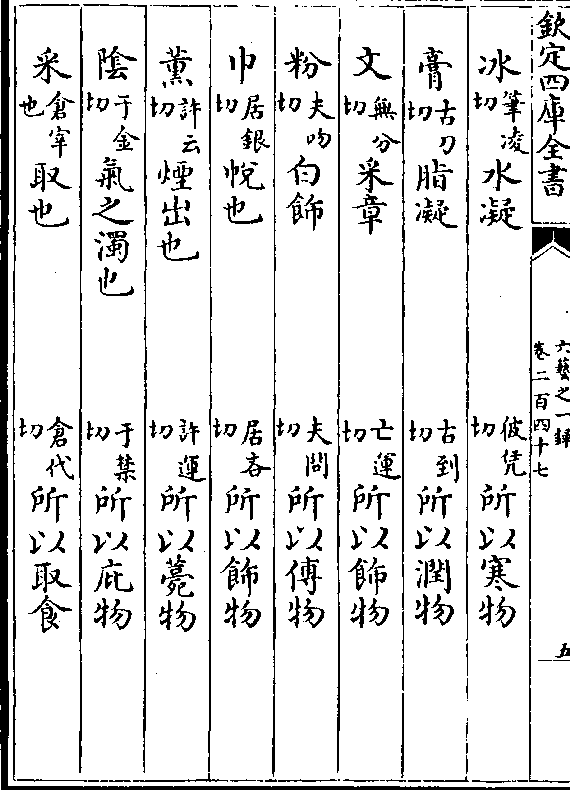 欽定四庫全書
六藝之一錄
卷二百四十七
五
冰筆凌切水凝 彼凭切所以寒物
膏古刀切脂凝 古到切所以潤物
文無分切采章 亡運切所以飾物
粉夫吻切白飾 夫問切所以傅物
巾居銀切帨也 居吝切所以飾物
薫許云切煙出也 許運切所以薧物
陰于金切氣之濁也 于禁切所以庇物
采倉宰也取也 倉代切所以取食